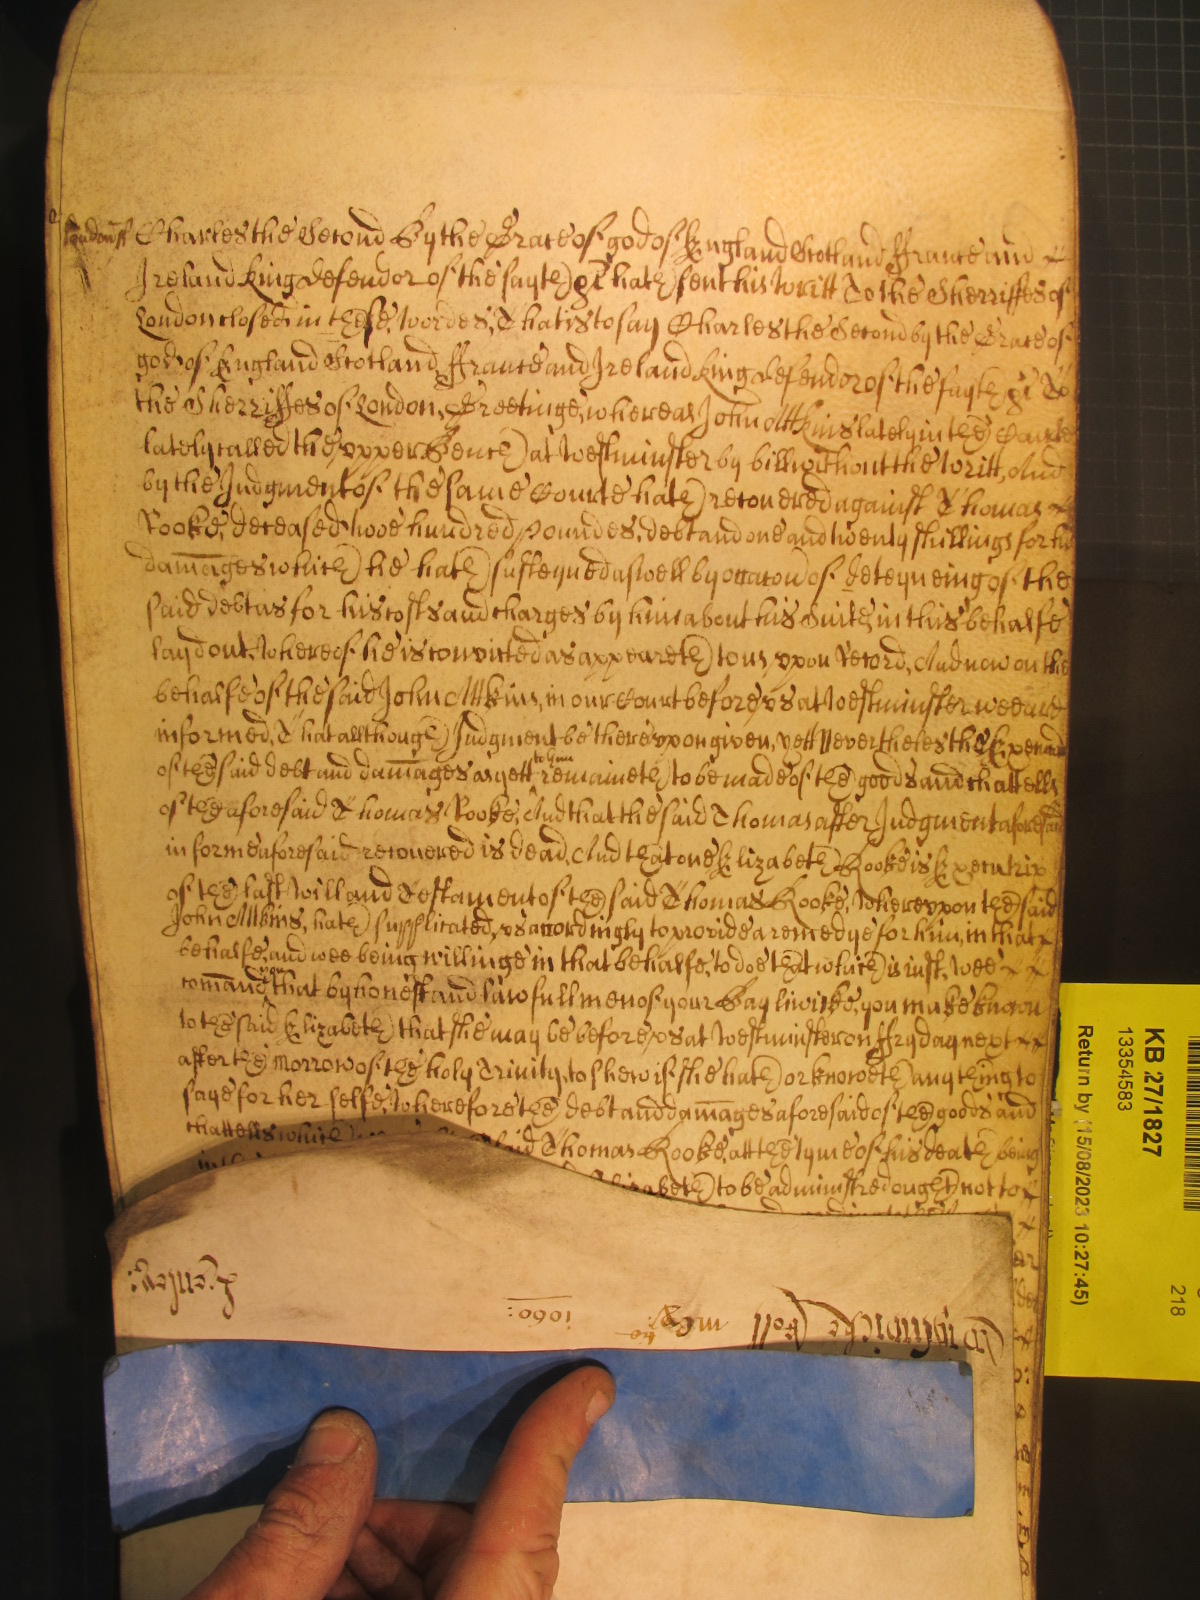 London ss Charles the Second By the Grace of god of England Scotland ffrance and
Ireland King defendor of the fayth &c hath sent his writt To the Sherriffes of
London closed in these wordes, That is to say Charles the Second by the Grace of
god of England Scotland ffrance and Ireland King defendor of the fayth &c To
the Sherriffes of London, Greetinge, whereas John Attkins lately in the Courte
lately called the vpper Bench at Westminster by bill without the writt, And
by the Judgment of the same Courte hath recouered against Thomas
Rooke, deceased twoe hundred poundes, debt and one and twenty shillings for his
damages which he hath susteyned aswell by occacon of deteyneing of the
said debt as for his costs and charges by him about his Suite in this behalfe
layd out, Whereof he is convicted as appeareth to us vpon Record, And now on the
behalfe of the said John Attkins, in our Court before vs at Westminster wee are
informed, That allthough Judgment be therevpon given, yett Neverthelesthe Execucon
of the said debt and damages as yett to him remaineth to be made of the goods and chattells
of the aforesaid Thomas Rooke, And that the said Thomas after Judgment aforesaid
in forme aforesaid recouered is dead, And that one Elizabeth Rooke is Executrix
of the last Will and Testament of the said Thomas Rooke, Wherevpon the said
John Attkins, hath supplicated, vs accordingly to provide a remedye for him, in that
behalfe, and wee being willinge in that behalfe, to doe that which is iust, Wee
comand you that by honest and lawfull men of your Bayliwicke, you make known
to the said Elizabeth that she may be before vs at Westminster on ffryday next
after the Morrow of the holy Trinity, to shew if she hath or knoweth any thing to
saye for her selfe, Wherefore the debt and damages aforesaid of the goods and
chattells which said Thomas Rooke, att the tyme of his death being
Elizabeth to be administred ought not to
Roll
1060:
KB 27/1827
13354583
218
Return by (15/08/2023 10:27:45)